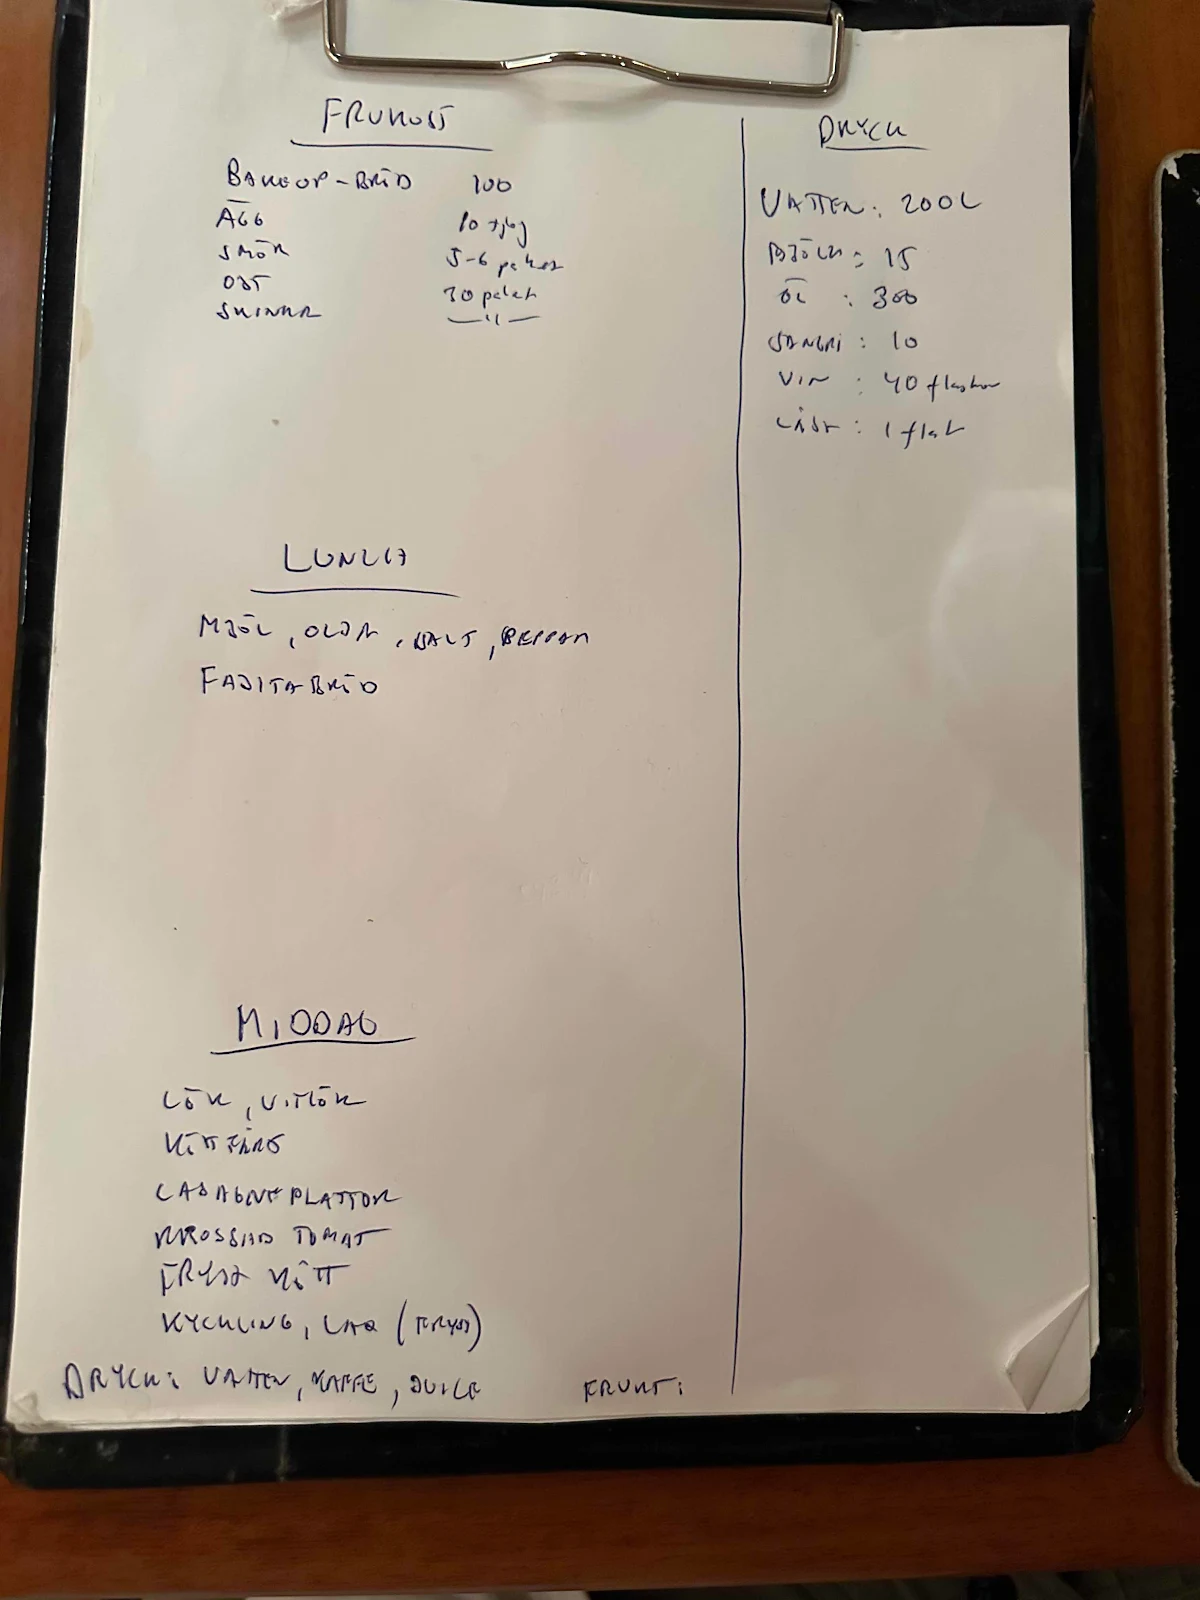 FRUKOST
BAKEUP-BRÖD 100
ÄGG 10 tjog
SMÖR 5-6 paket
OST 30 paket
SKINKA —"—
LUNCH
MJÖL, OLJA, SALT, PEPPAR
FAJITABRÖD
MIDDAG
LÖK, VITLÖK
KÖTTFÄRS
LASAGNEPLATTOR
KROSSAD TOMAT
FRYST KÖTT
KYCKLING, LAX (FRYST)
DRYCK: VATTEN, KAFFE, JUICE
FRUKT:
DRYCK
VATTEN: 200L
MJÖLK: 15
ÖL : 300
SANGRI : 10
VIN : 40 flaskor
LÄSK : 1 flak